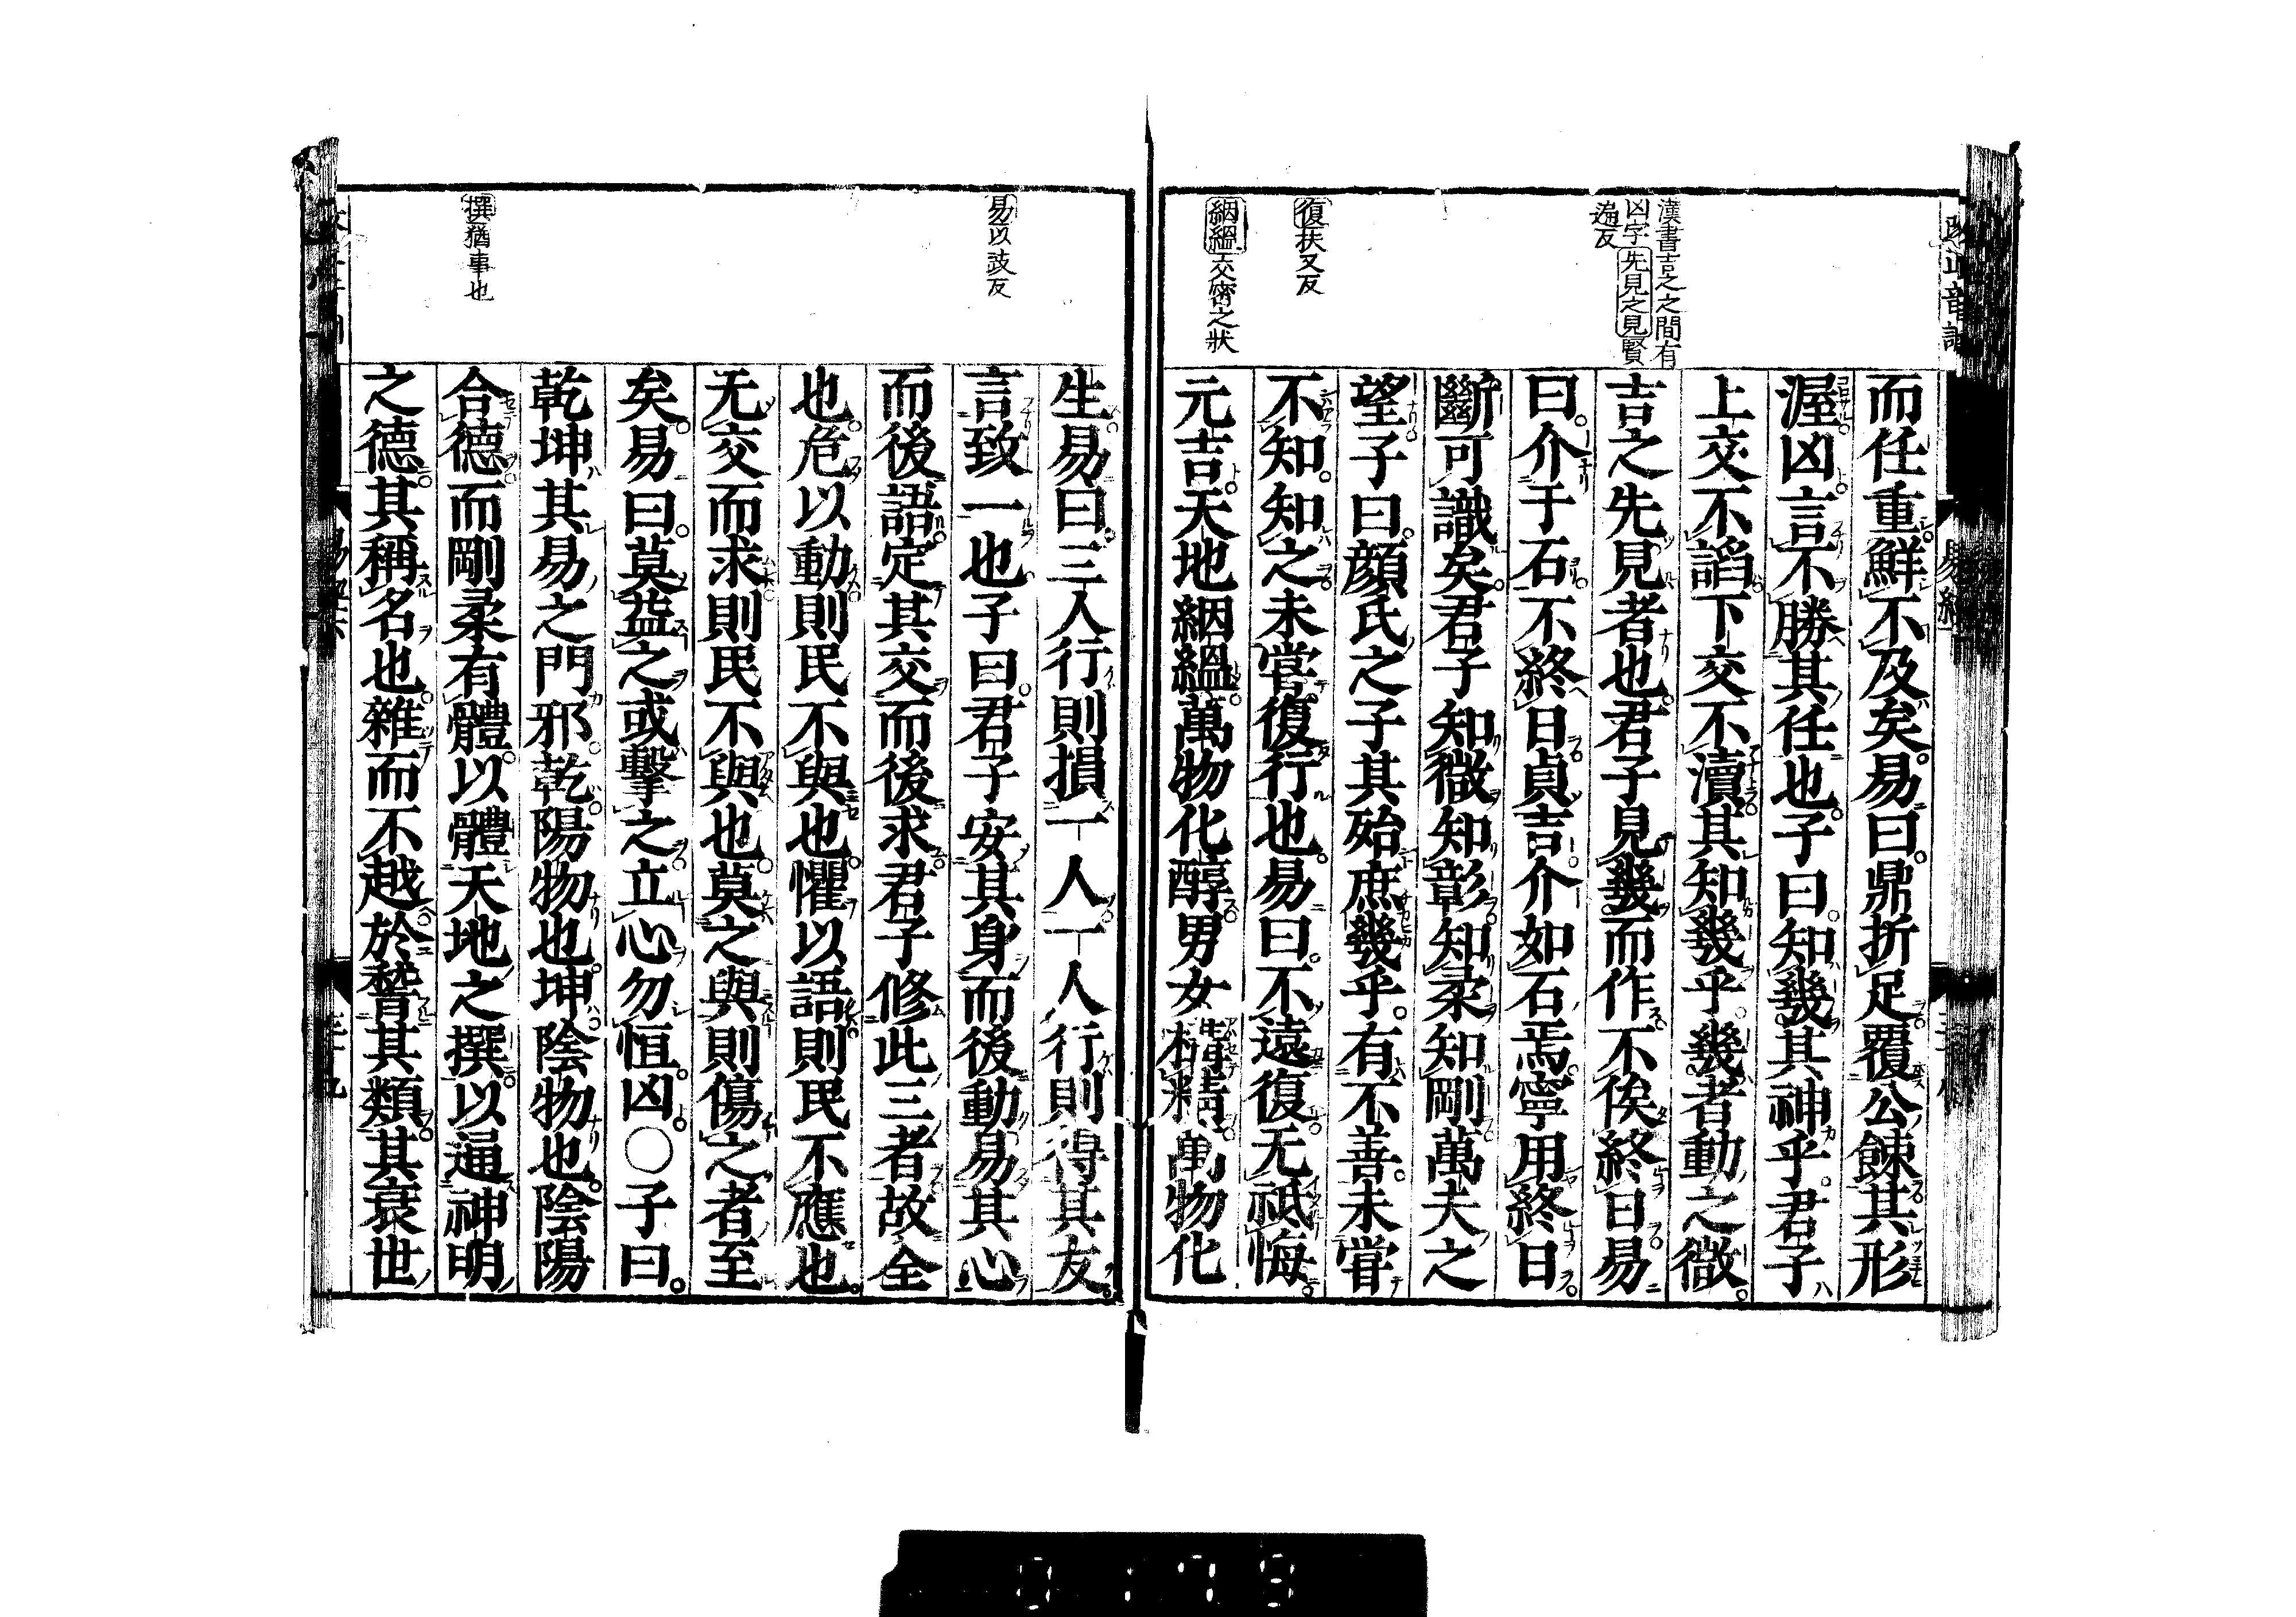 漢書吉之之間有
凶字先見之見賢
遍反
復扶又反
絪縕交密之狀
而任重鮮不及矣。易曰。鼎折足覆公餗其形
渥凶。言不勝其任也。子曰。知幾其神乎。君子
上交不諂下交不瀆其知幾乎。幾者動之微。
吉之先見者也。君子見幾而作不俟終日。易
曰。介于石。不終日貞吉。介如石焉。寧用終日。
斷可識矣。君子知微知彰知柔知剛萬夫之
望子曰。顏氏之子其殆庶幾乎。有不善。未嘗
不知。知之未嘗復行也。易曰。不遠復无祇悔
元吉。天地絪縕。萬物化醇男女構精。萬物化
易以豉反
撰猶事也
生。易曰。三人行則損一人一人行則得其友。
言致一也子曰。君子安其身而後動易其心
而後語。定其交而後求。君子修此三者故全
也。危以動則民不與也。懼以語則民不應也。
无交而求則民不與也。莫之與則傷之者至
矣。易曰。莫益之或擊之立心勿恒凶。○子曰。
乾坤其易之門邪。乾陽物也。坤陰物也。陰陽
合德而剛柔有體。以體天地之撰以通神明
之德其稱名也。雜而不越於稽其類其衰世